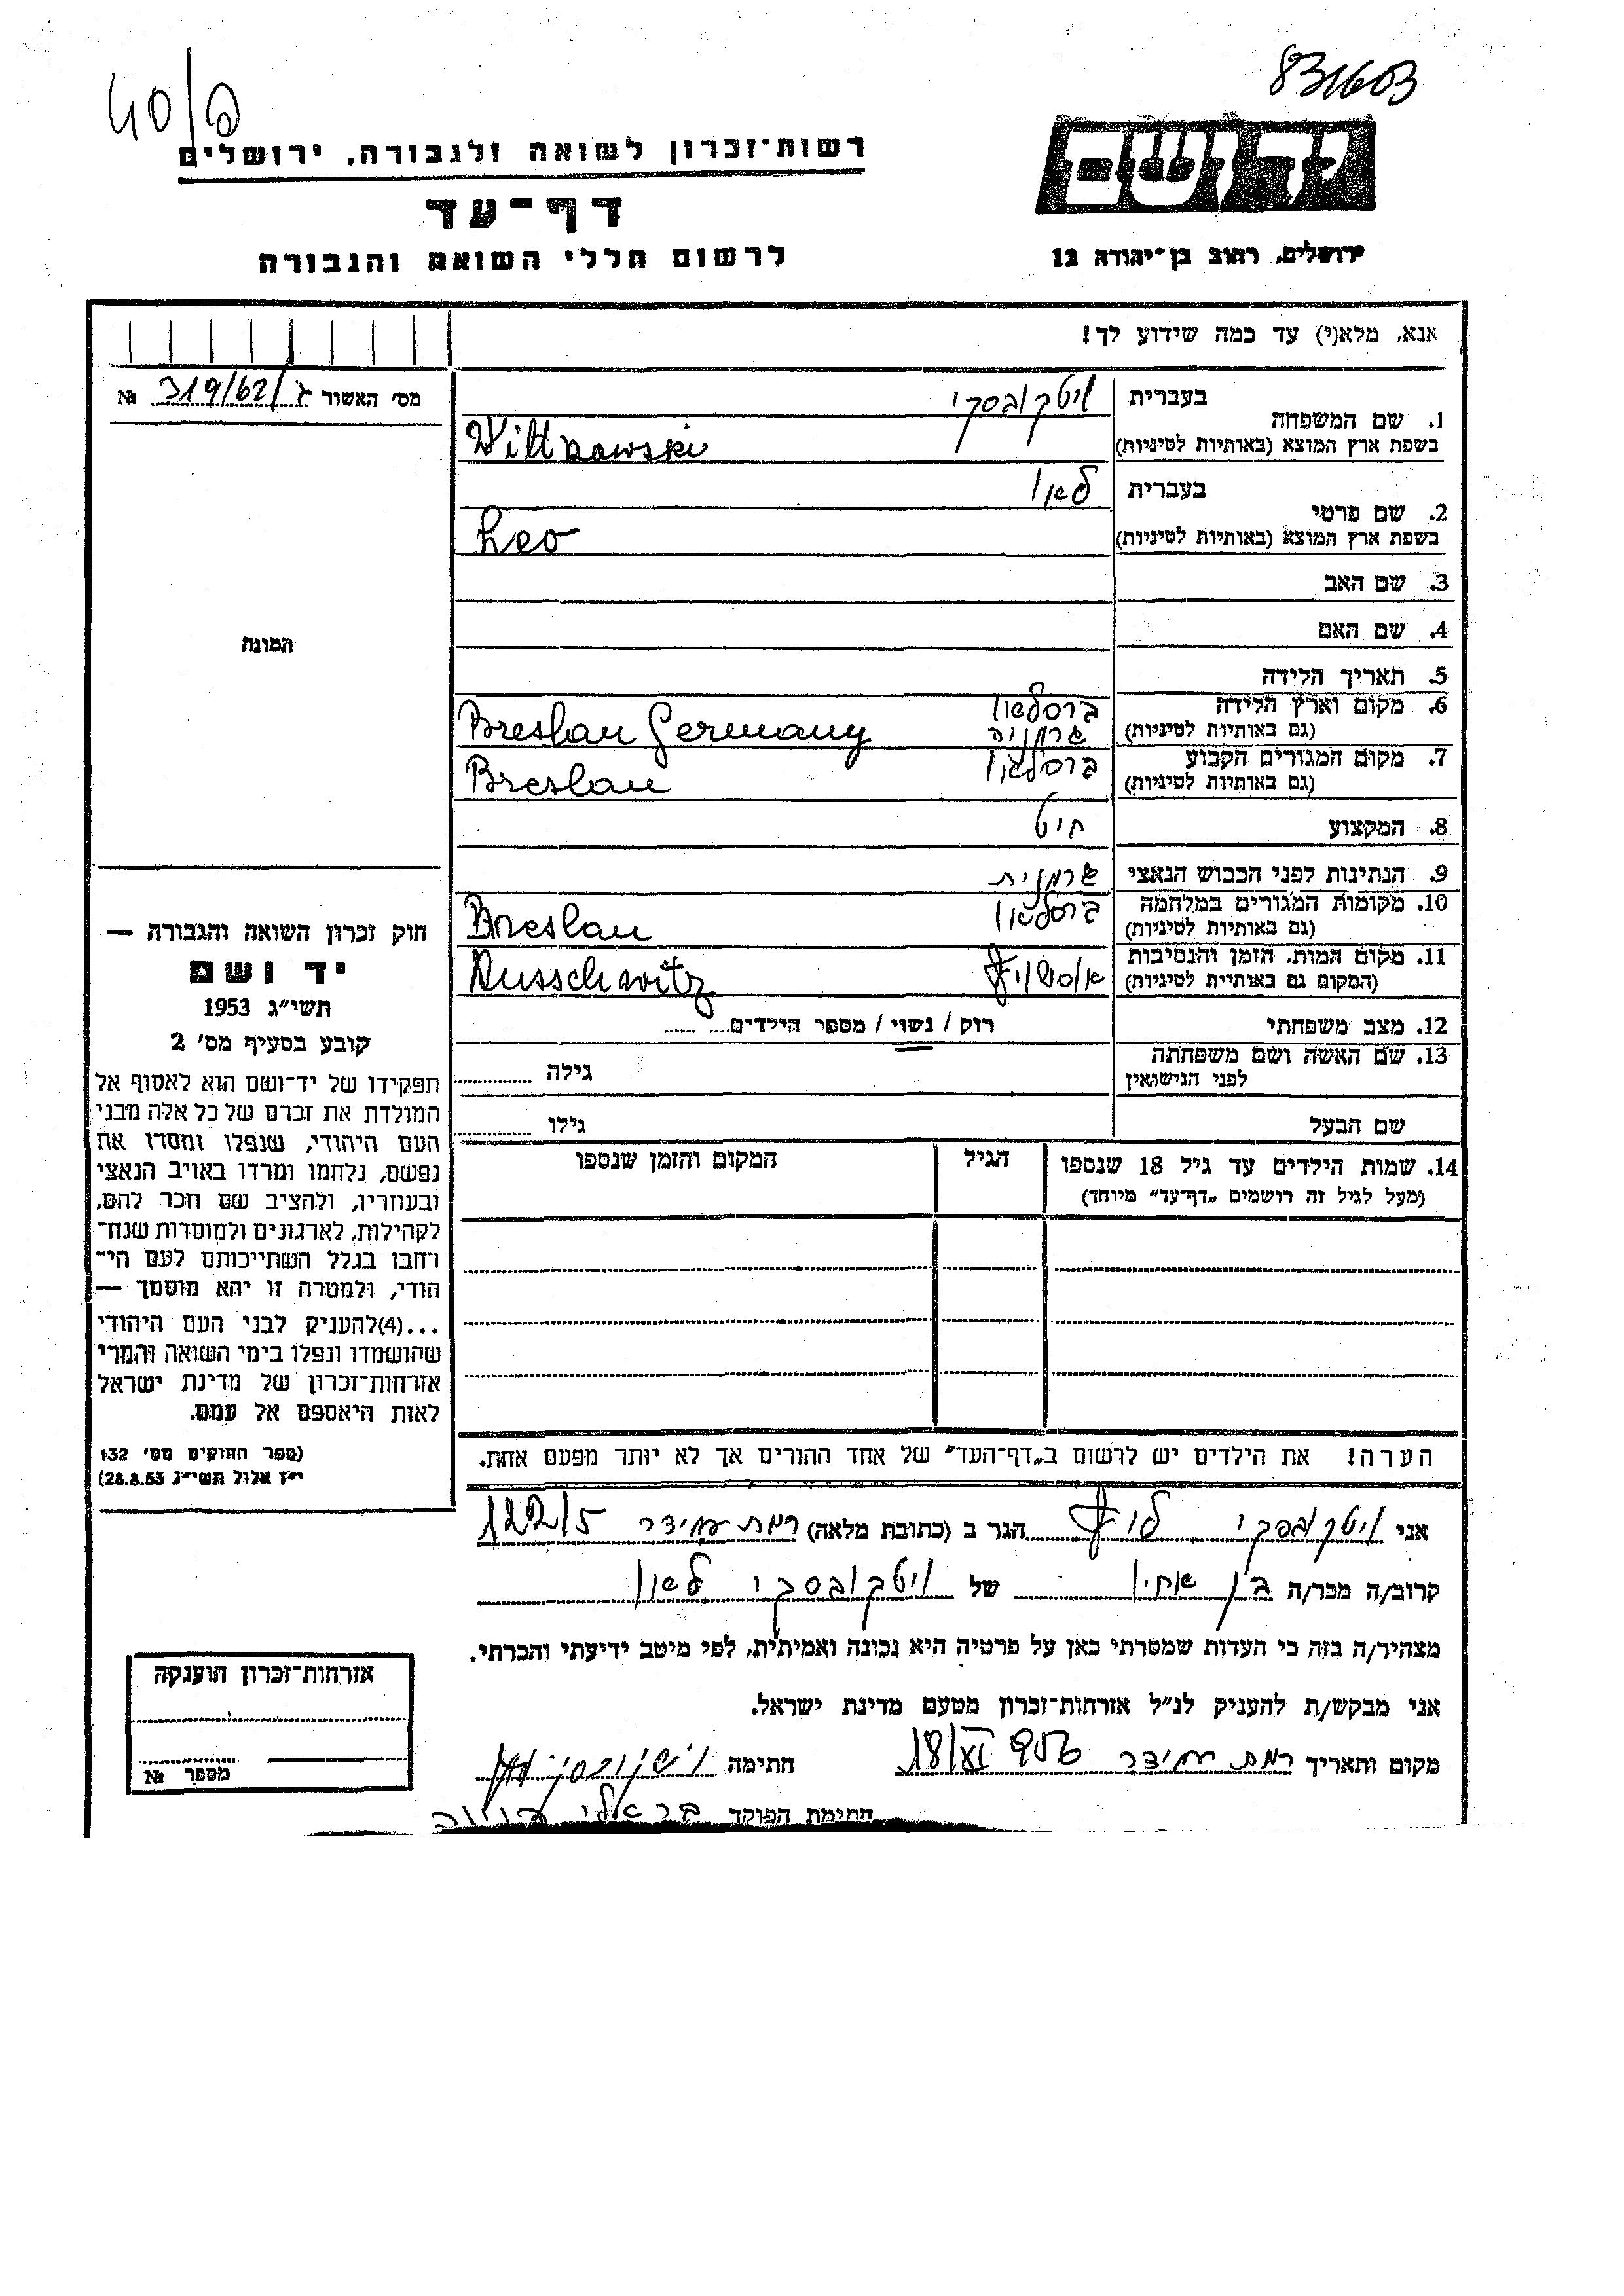 831603
40/פ
רשות-זכרון לשואה ולגבורה, ירושלים
יד ושם
דף-עד
ירושלים, רחוב בן-יהודה 12
לרשום חללי השואה והגבורה
אנא, מלא(י) עד כמה שידוע לך!
מס' האשור 319/62/ג №
1. שם המשפחה
בעברית ויטקובסקי
בשפת ארץ המוצא (באותיות לטיניות) Wittkowski
2. שם פרטי
בעברית לאו
בשפת ארץ המוצא (באותיות לטיניות) Leo
3. שם האב
4. שם האם
5. תאריך הלידה
6. מקום וארץ הלידה ברסלאו גרמניה Breslau Germany
(גם באותיות לטיניות)
7. מקום המגורים הקבוע ברסלאו Breslau
(גם באותיות לטיניות)
8. המקצוע חיט
9. הנתינות לפני הכבוש הנאצי גרמנית
10. מקומות המגורים במלחמה ברסלאו Breslau
(גם באותיות לטיניות)
11. מקום המות, הזמן והנסיבות אוסשויץ Ausschwitz
(המקום גם באותיית לטיניות)
12. מצב משפחתי רוק / נשוי / מספר הילדים
13. שם האשה ושם משפחתה
לפני הנישואין גילה
שם הבעל גילו
14. שמות הילדים עד גיל 18 שנספו
(מעל לגיל זה רושמים „דף-עד" מיוחד)
הגיל
המקום והזמן שנספו
הערה! את הילדים יש לרשום ב„דף-העד" של אחד ההורים אך לא יותר מפעם אחת.
תמונה
חוק זכרון השואה והגבורה —
יד ושם
תשי"ג 1953
קובע בסעיף מס' 2
תפקידו של יד-ושם הוא לאסוף אל
המולדת את זכרם של כל אלה מבני
העם היהודי, שנפלו ומסרו את
נפשם, נלחמו ומרדו באויב הנאצי
ובעוזריו, ולהציב שם וזכר להם,
לקהילות, לארגונים ולמוסדות שנח-
רחבו בגלל השתייכותם לעם הי-
הודי, ולמטרה זו יהא מוסמך —
...(4)להעניק לבני העם היהודי
שהושמדו ונפלו בימי השואה והמרי
אזרחות-זכרון של מדינת ישראל
לאות היאספם אל עמם.
(ספר החוקים מס' 132
י"ז אלול תשי"ג 28.8.53)
אני ויטקובסקי הגר ב (כתובת מלאה) רמת עמידר 122/5
קרוב/ה מכר/ה בן אחיו של ויטקובסקי לאון
מצהיר/ה בזה כי העדות שמסרתי כאן על פרטיה היא נכונה ואמיתית, לפי מיטב ידיעתי והכרתי.
אני מבקש/ת להעניק לנ"ל אזרחות-זכרון מטעם מדינת ישראל.
מקום ותאריך רמת עמידר 18/XI 956 חתימה
חתימת הפוקד
אזרחות-זכרון הוענקה
מספר №